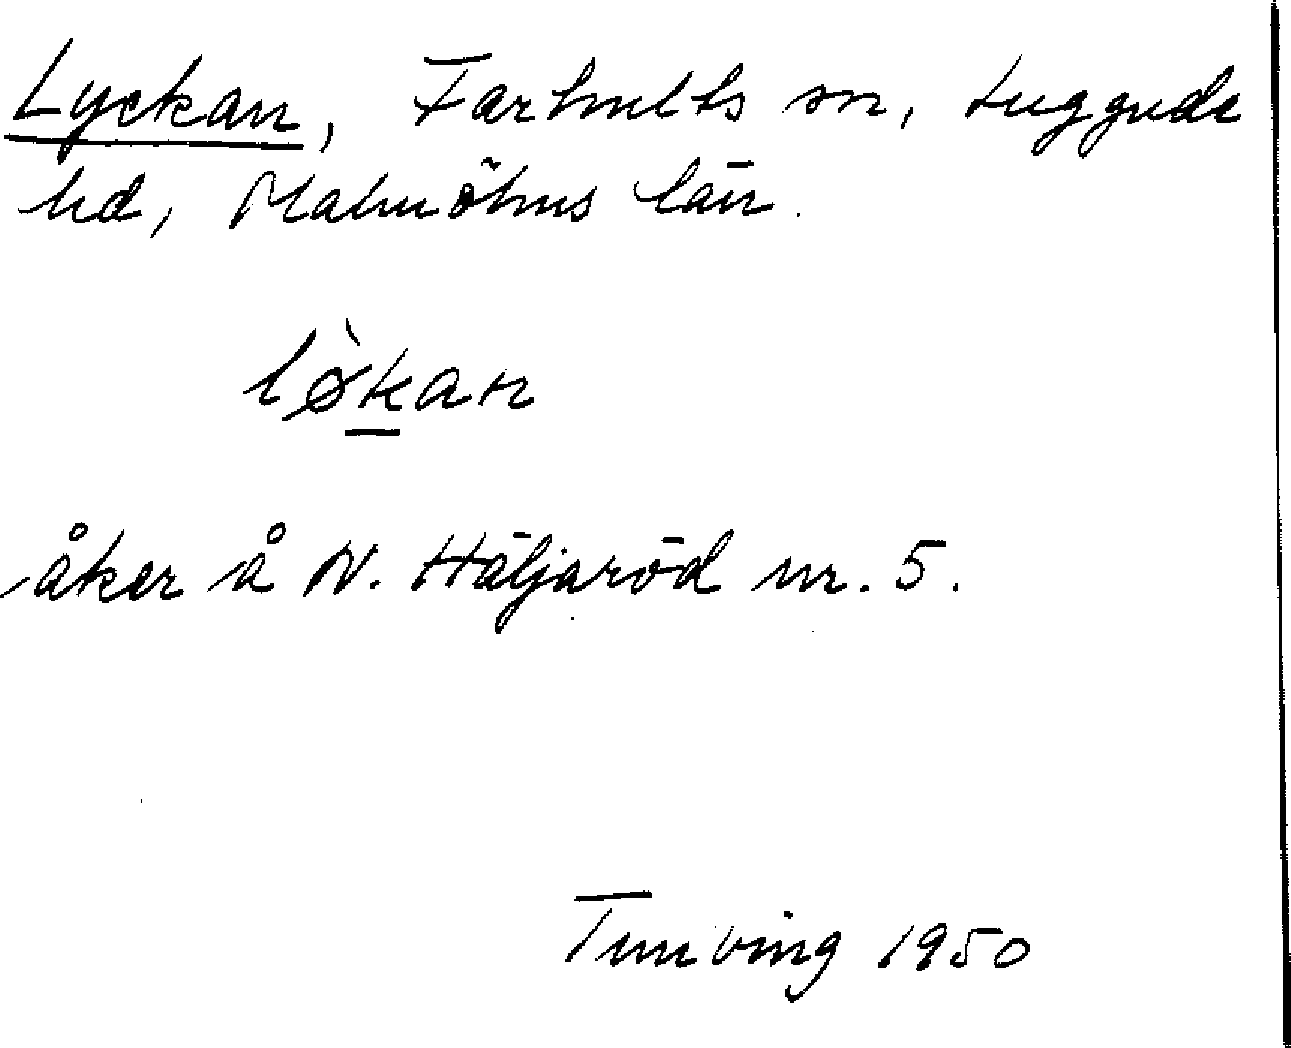 Lyckan, Farhults sn, Luggude
hd, Malmöhus län.
lø̀kan
åker å N. Häljaröd nr. 5.
Tunving 1950